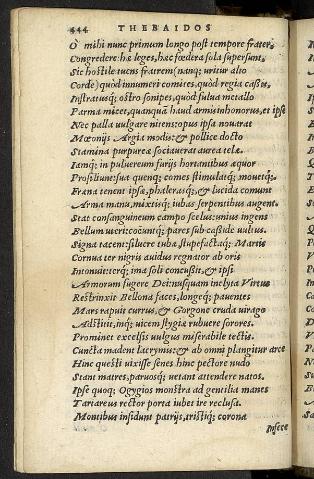 444 THEBAIDOS
O mihi nunc primum longo post tempore frater,
Congredere: hæ leges, hæc fœdera sola supersunt.
Sic hostile tuens fratrem (nanq; uritur alto
Corde) quòd innumeri comites, quòd regia cassis,
Instratusq; ostro sonipes, quòd fulua metallo
Parma micet, quanquā haud armis inhonorus, et ipse
Nec palla uulgare nitens: opus ipsa nouarat
Mœonijs Argia modis: & pollice docto
Stamina purpureæ sociauerat aurea telæ.
Iamq; in puluereum furijs hortantibus æquor
Prosiliunt: sua quenq; comes stimulatq; mouetq;.
Fræna tenent ipsæ, phalerasq;, & lucida comunt
Arma manu, mixtisq; iubas serpentibus augent.
Stat consanguineum campo scelus: unius ingens
Bellum uteri: coeuntq; pares sub casside uultus.
Signa tacent: siluere tubæ, stupefactaq; Martis
Cornua ter nigris auidus regnator ab oris
Intonuit: terq; ima soli concussit, & ipsi
Armorum fugere Dei: nusquam inclyta Virtus
Restrinxit Bellona faces, longeq; pauentes
Mars rapuit currus, & Gorgone cruda uirago
Adstitit, inq; uicem stygiæ rubuere sorores.
Prominet excelsis uulgus miserabile tectis.
Cuncta madent lacrymis: & ab omni plangitur arce
Hinc questi uixisse senes hinc pectore nudo
Stant matres, paruosq; uetant attendere natos.
Ipse quoq; Ogygios monstra ad gentilia manes
Tartareus rector porta iubet ire reclusa.
Montibus insidunt patrijs, tristiq; corona
Infece